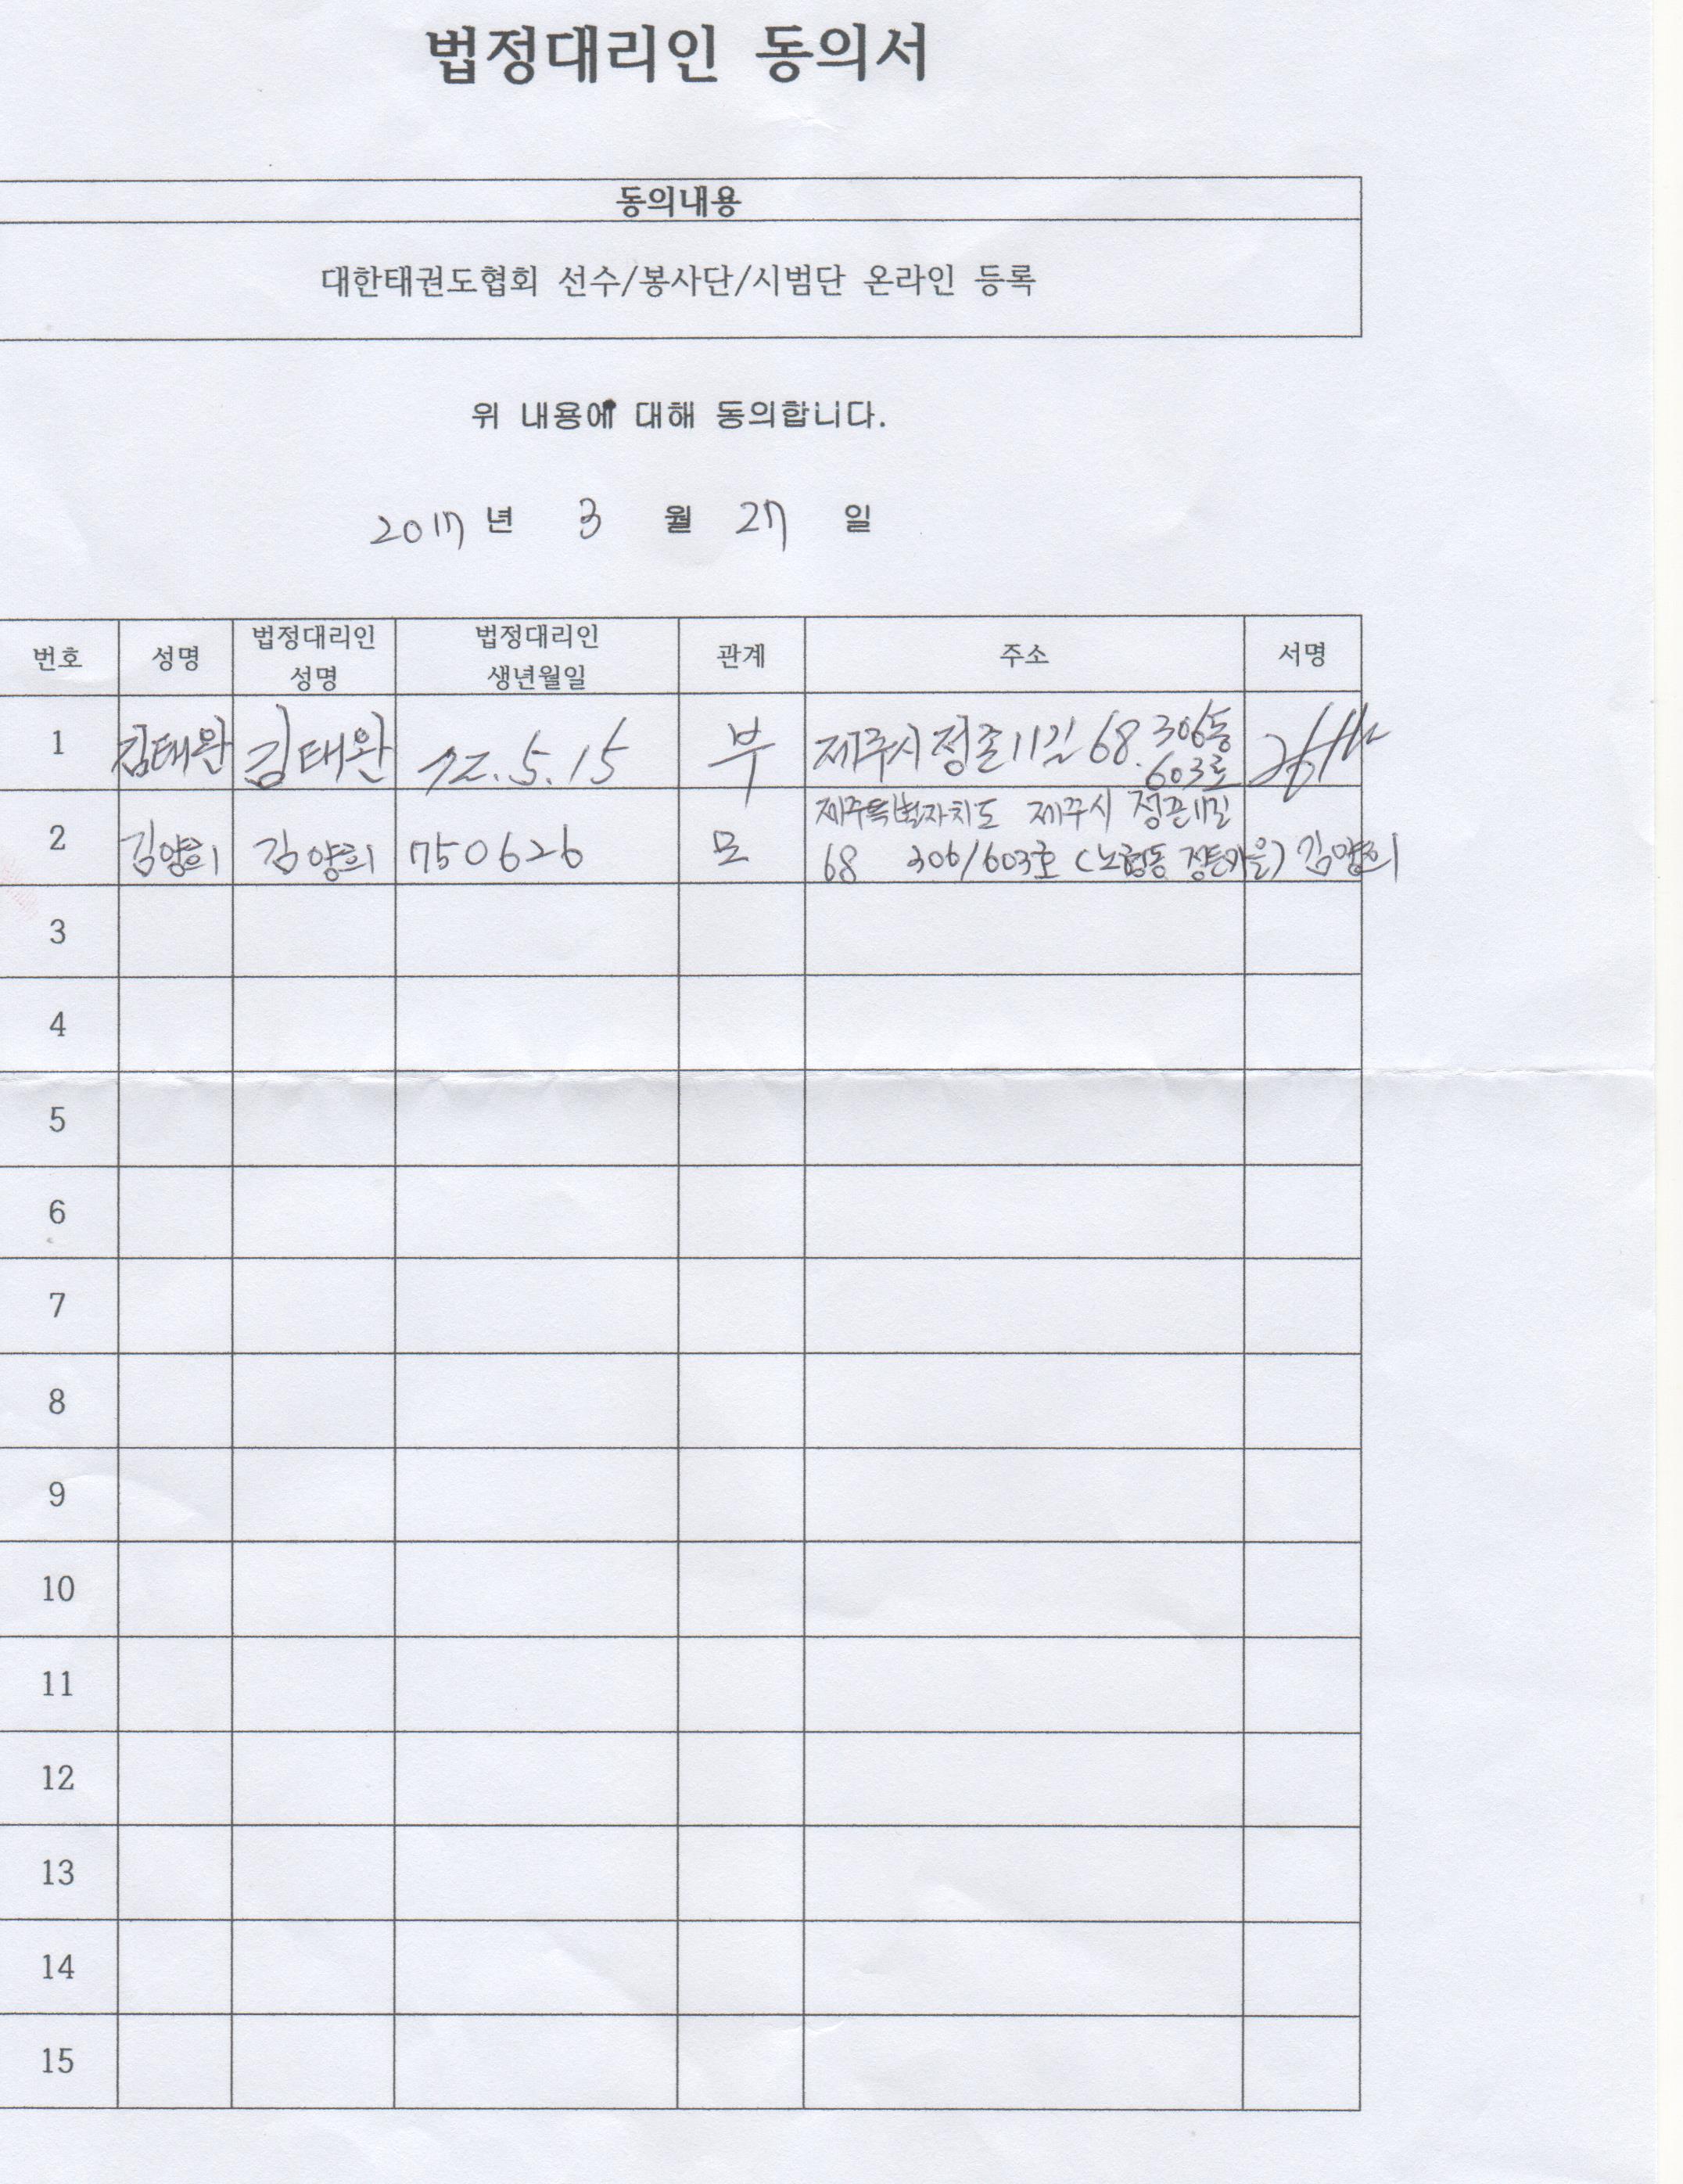 법정대리인 동의서
동의내용
대한태권도협회 선수/봉사단/시범단 온라인 등록
위 내용에 대해 동의합니다.
2017 년 3 월 27 일
번호 성명 법정대리인 성명 법정대리인 생년월일 관계 주소 서명
1 김태완 김태완 72.5.15 부 제주시 정존11길 68. 306동 603호
2 김양희 김양희 750626 모 제주특별자치도 제주시 정존11길
68 306/603호 (노형동 정든마을) 김양희
3
4
5
6
7
8
9
10
11
12
13
14
15